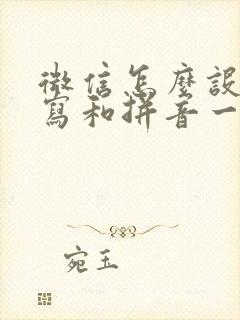 微信怎麼設
寫和拼音一
宛玉